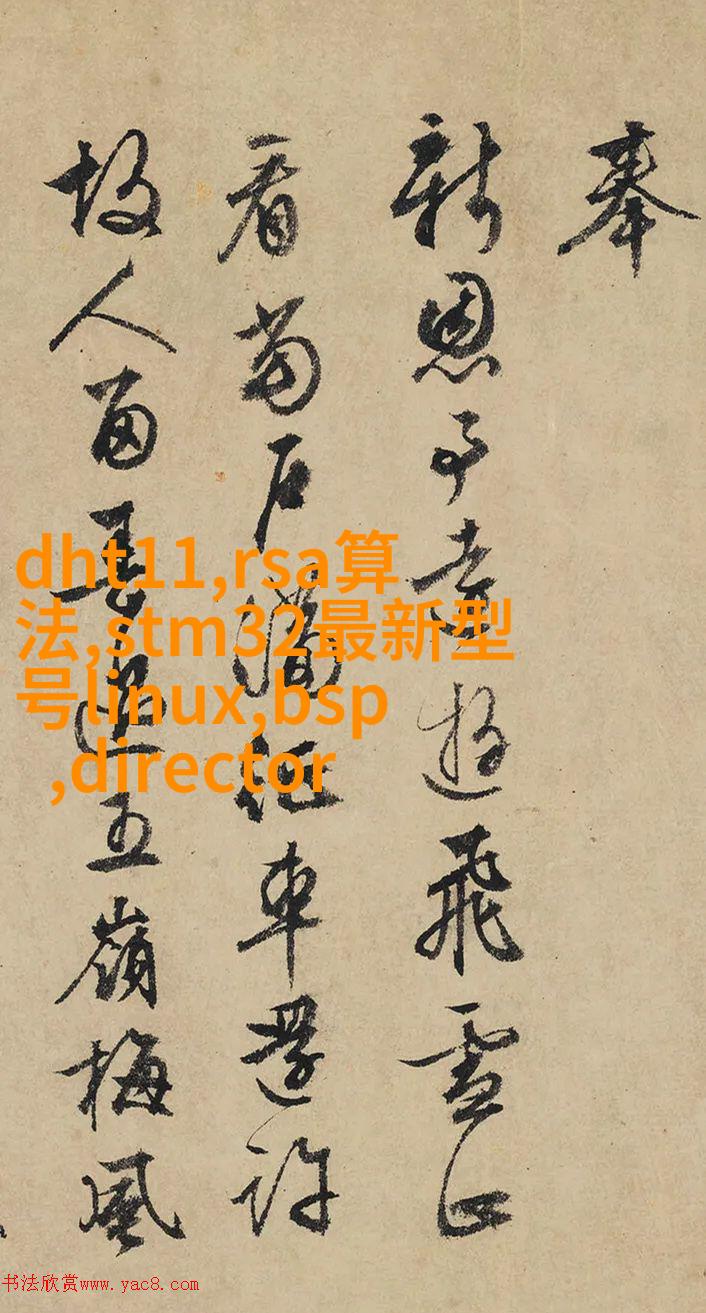 奉
新恩事遠遊飛雪正
看當戶滿征車還許
故人留春五嶺梅風
dht11,rsa算
法,stm32最新型
号linux,bsp
,director
书法欣赏www.yac8.com